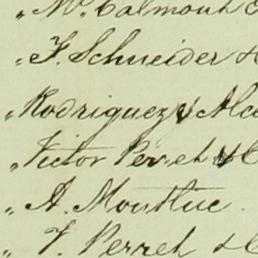 „ Mc Calmont
„ F. Schneider &
„ Rodriguez y
„ Victor Perret & C
„ A. Montluc.
„ F. Perret & C